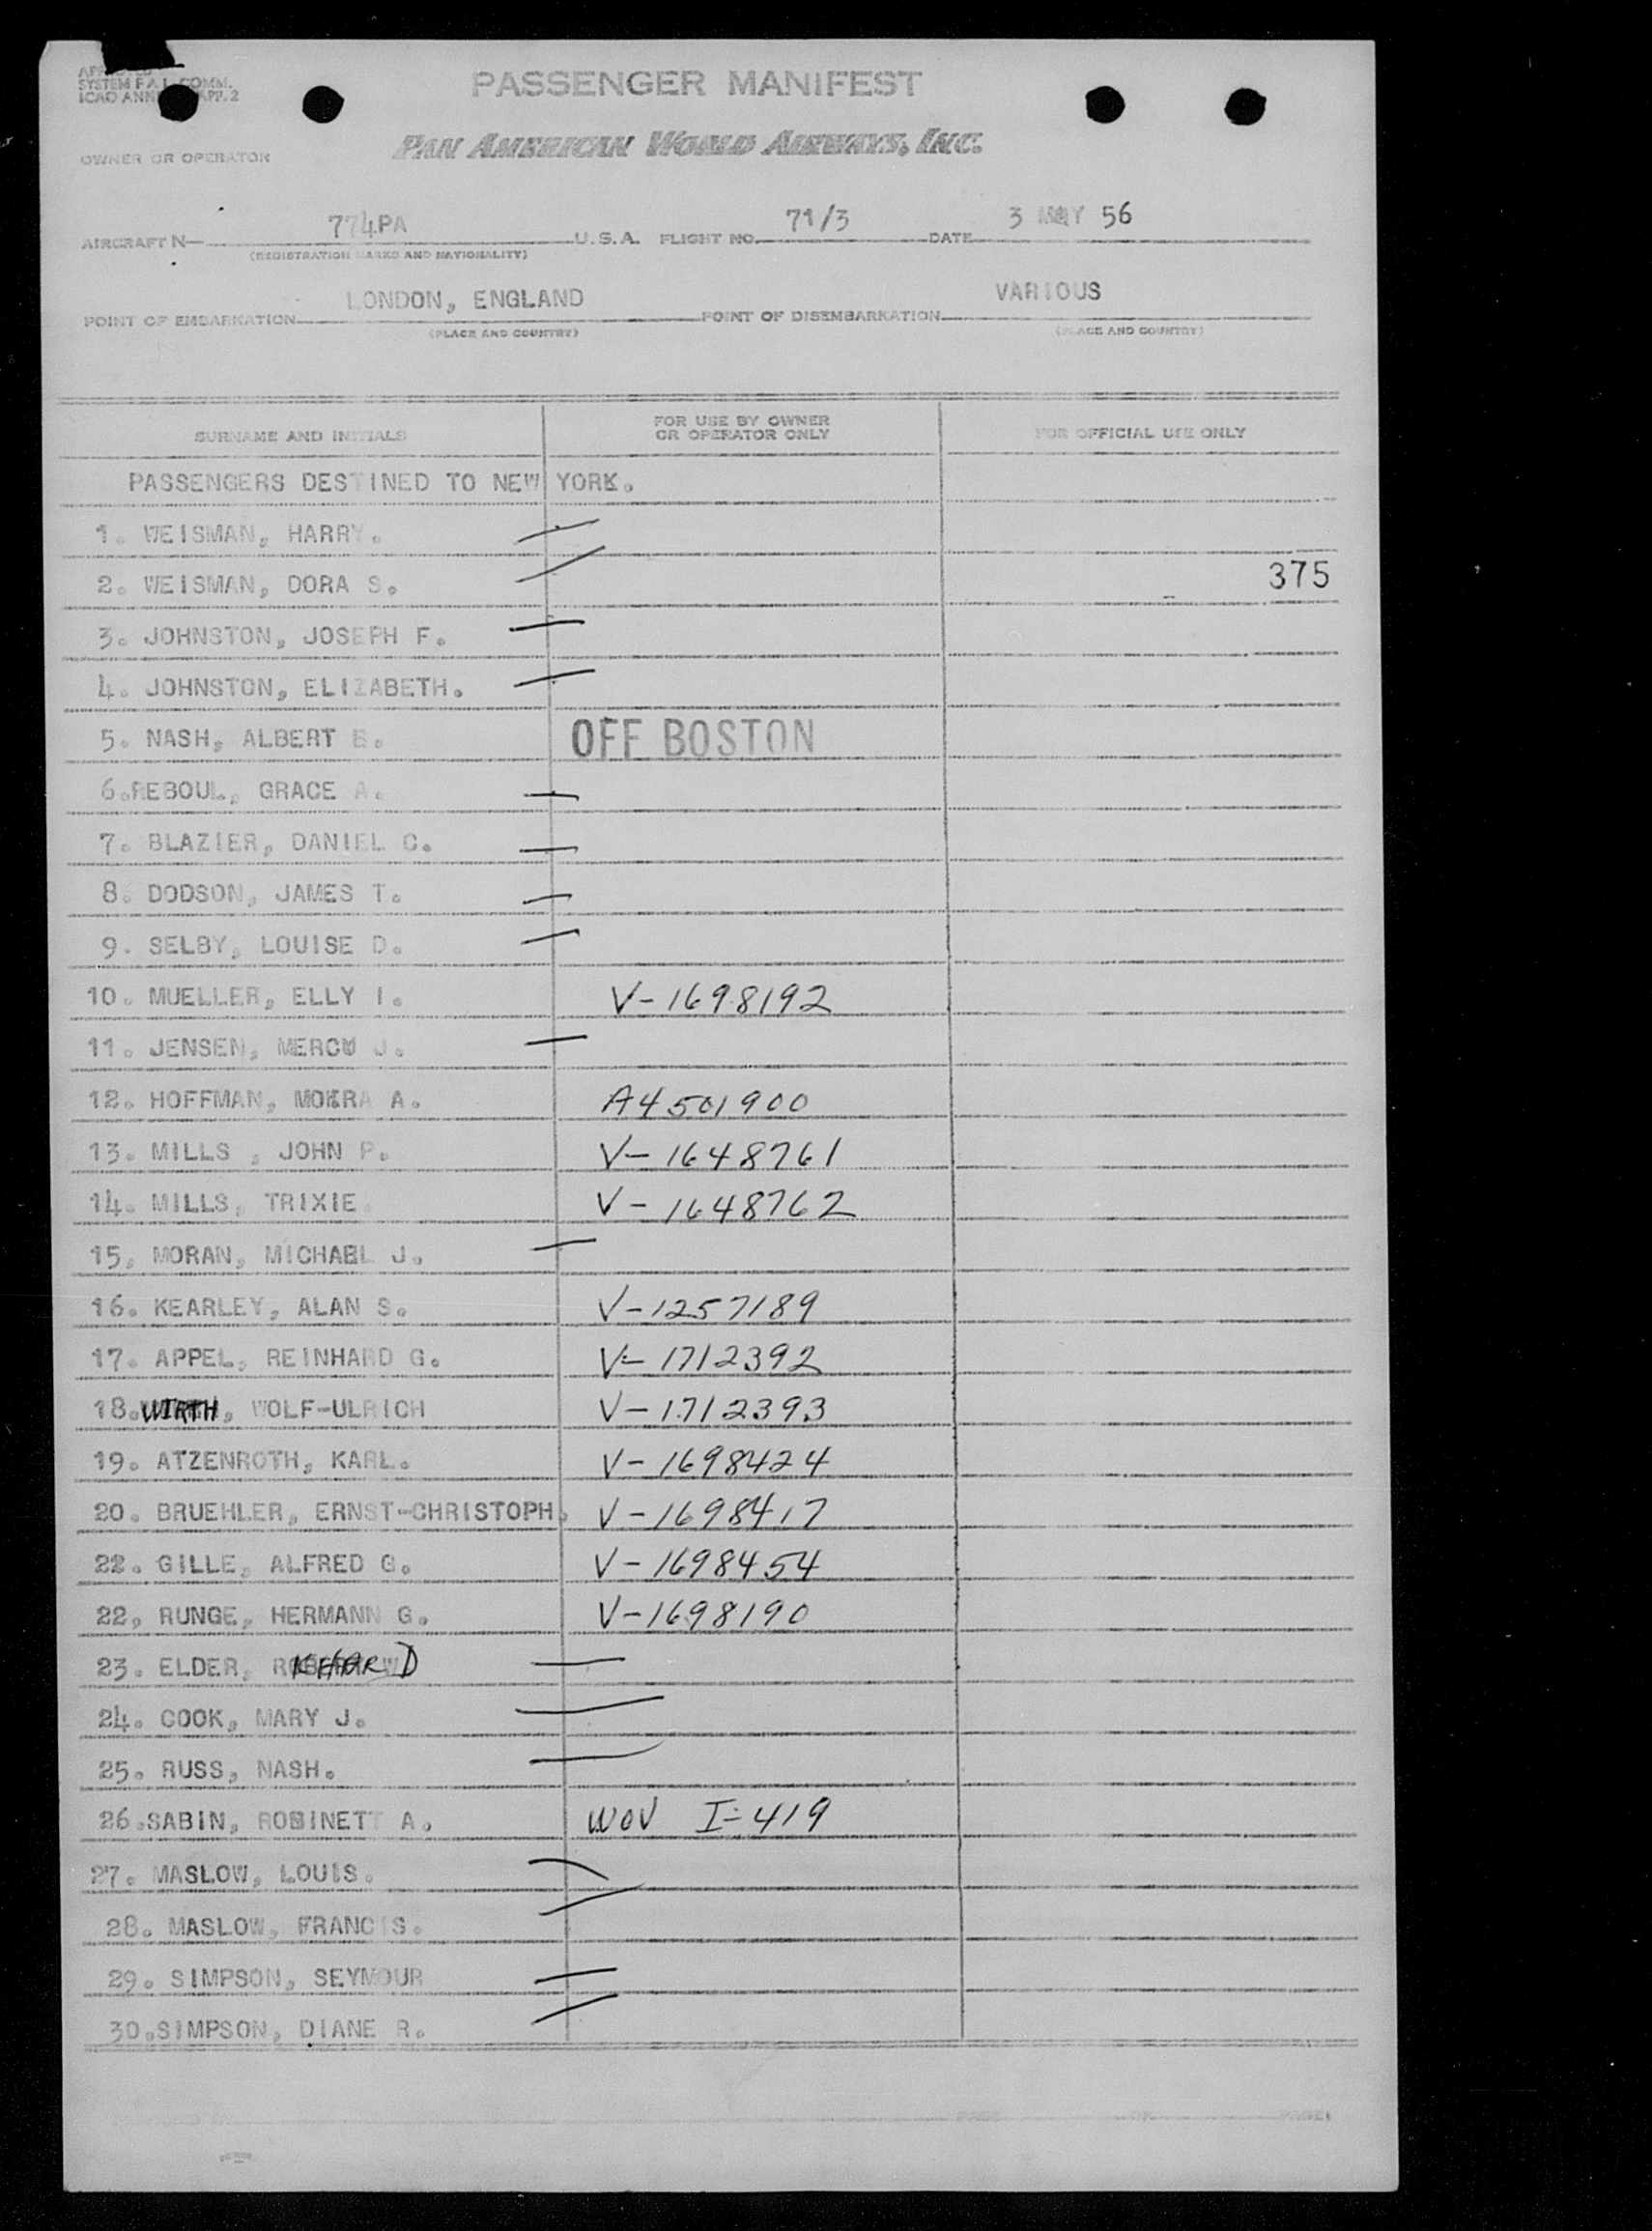 SYSTEM F.A.L. COMM.
ICAO APP. 2
PASSENGER MANIFEST
OWNER OR OPERATOR
PAN AMERICAN WORLD AIRWAYS, INC.
AIRCRAFT N— 774PA U.S.A. FLIGHT NO. 71/3 DATE 3 MAY 56
(REGISTRATION MARKS AND NATIONALITY)
POINT OF EMBARKATION LONDON, ENGLAND POINT OF DISEMBARKATION VARIOUS
(PLACE AND COUNTRY) (PLACE AND COUNTRY)
SURNAME AND INITIALS FOR USE BY OWNER OR OPERATOR ONLY FOR OFFICIAL USE ONLY
PASSENGERS DESTINED TO NEW YORK.
1. WEISMAN, HARRY.
2. WEISMAN, DORA S. 375
3. JOHNSTON, JOSEPH F.
4. JOHNSTON, ELIZABETH.
5. NASH, ALBERT E. OFF BOSTON
6.REBOUL, GRACE A.
7. BLAZIER, DANIEL C.
8. DODSON, JAMES T.
9. SELBY, LOUISE D.
10. MUELLER, ELLY I. V-1698192
11. JENSEN, J.
12. HOFFMAN, A. A4501900
13. MILLS , JOHN P. V-1648761
14. MILLS, TRIXIE V-1648762
15, MORAN, MICHAEL J.
16. KEARLEY, ALAN S. V-1257189
17. APPEL, REINHARD G. V-1712392
18. WIRTH, WOLF-ULRICH V-1712393
19. ATZENROTH, KARL. V-1698424
20. BRUEHLER, ERNST-CHRISTOPH. V-1698417
22. GILLE, ALFRED G. V-1698454
22, RUNGE, HERMANN G. V-1698190
23. ELDER,
24. COOK, MARY J.
25. RUSS, NASH.
26.SABIN, ROBINETT A. WOV I-419
27. MASLOW, LOUIS.
28. MASLOW, FRANCIS.
29. SIMPSON, SEYMOUR
30.SIMPSON, DIANE R.